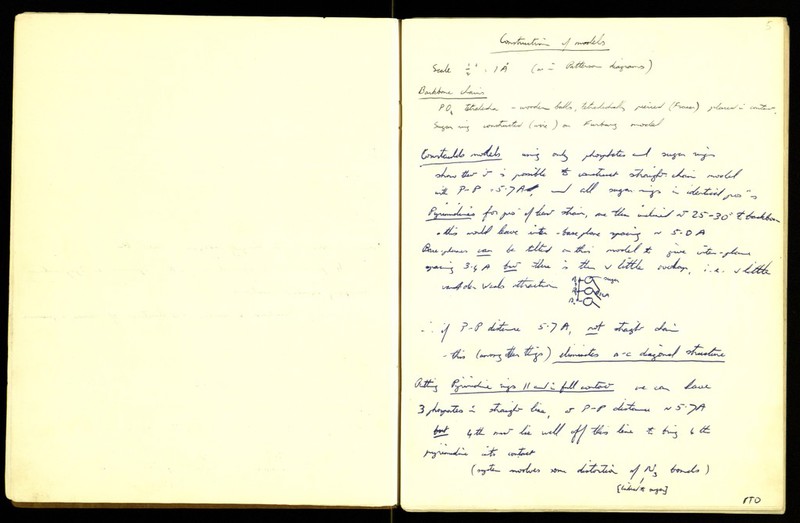 5
Construction of models
Scale ½" = 1 Å (as in Patterson diagrams)
Backbone chains
PO4 tetrahedra - wooden balls, tetrahedrally pierced (Fraser) placed in contact.
Sugar ring constructed (wire) on Furberg model
Constructed models using only phosphates and sugar rings
show that it is possible to construct straight chain model
with P-P = 5.7 A, and all sugar rings in identical pos'ns
Pyrimidines for pos' of least strain, are then inclined at 25-30° to backbone
this would leave inter-base plane spacing ~ 5.0 A
Base-planes can be tilted on this model to give inter-plane
spacing 3.4 A but there is then v little overlap, i.e. v little
van der Waals attraction
sugar
∴ if P-P distance 5.7 A, not straight chain
- this (among other things) eliminates a-c diagonal structure
Putting Pyrimidine rings || and in full contact we can have
3 phosphates in straight line, at P-P distance ~ 5.7 A
but 4th must lie well off this line to bring 4th
pyrimidine into contact
(system involves some distortion of N3 bonds)
[linked to sugar]
PTO